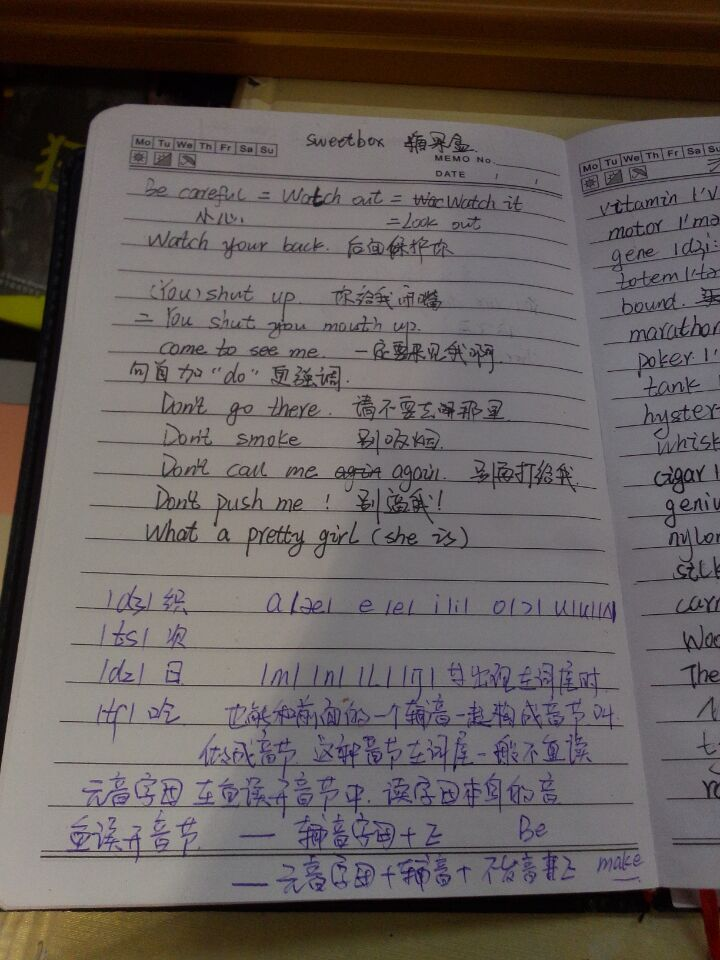 sweetbox 糖果盒
Mo Tu We Th Fr Sa Su
MEMO No.
DATE / /
Be careful = Watch out = Watch it
小心 = Look out
Watch your back. 后面保护你
(You) shut up. 你给我闭嘴
= You shut you mouth up.
come to see me. 一定要来见我啊
句首加"do"更强调.
Don't go there. 请不要去那里
Don't smoke 别吸烟.
Don't call me again. 别再打给我.
Don't push me! 别逼我!
What a pretty girl (she is)
|dʒ| 织 a |æ| e |e| i |i| o |ɔ| u |u| |ʌ|
|ts| 次
|dz| 日 |m| |n| |L| |ŋ| 等出现在词尾时
|tʃ| 吃 也能和前面的一个辅音一起构成音节叫
做成音节. 这种音节在词尾一般不重读
元音字母在重读开音节中. 读字母本身的音
重读开音节. — 辅音字母+元 Be
— 元音字母+辅音+不发音 make
Mo Tu We Th Fr Sa Su
vitamin
motor
gene |dʒi:
totem
bound.
marathon
poker
tank
hyster
whisk
cigar
geniu
nylon
carr
The